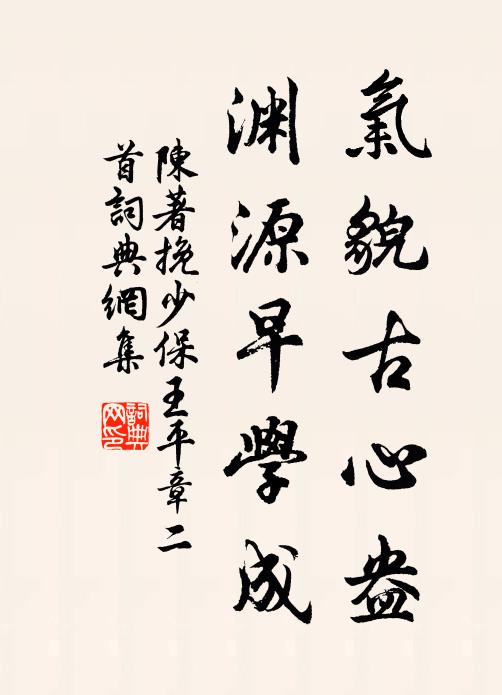 氣貌古心盎
淵源早學成
陳著挽少保王平章二
首詞典網集
詞典網印